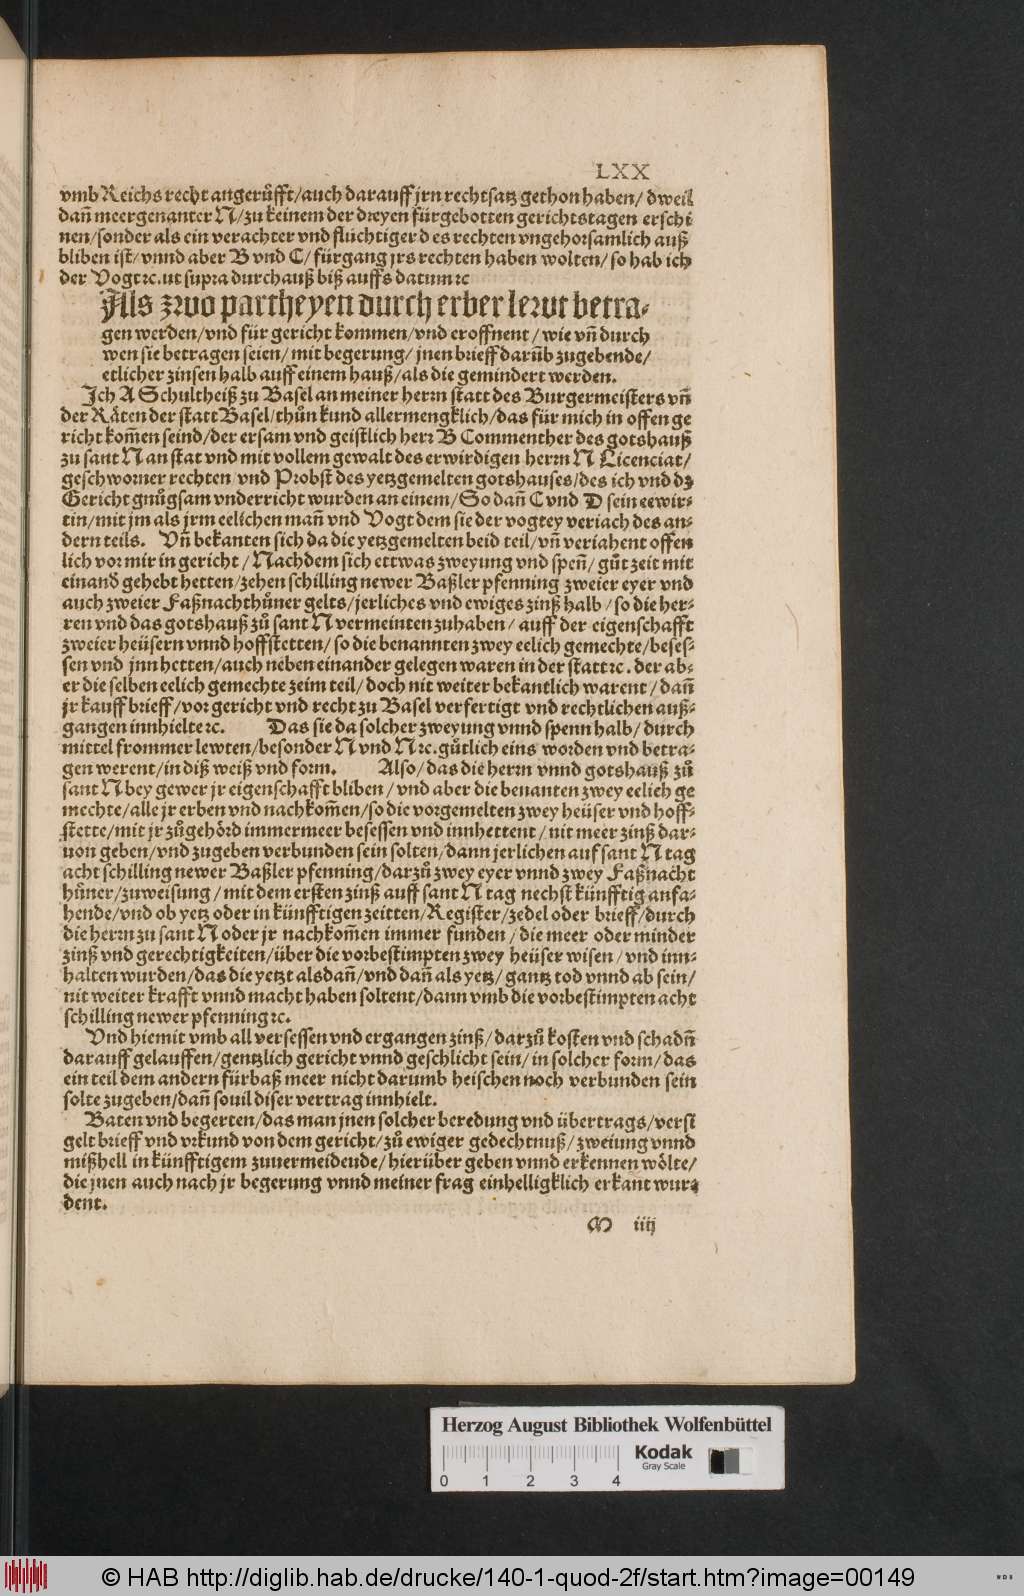 LXX
vmb Reichs recht angerůfft/auch darauff jrn rechtsatz gethon haben/ dweil
dañ meergenanter N/zu keinem der dreyen fürgebotten gerichtstagen erschi
nen/sonder als ein verachter vnd fluchtiger d es rechten vngehorsamlich auß
bliben ist/ vnnd aber B vnd C/ fürgang jrs rechten haben wolten/ so hab ich
der Vogt ꝛc. ut supra durchauß biß auffs datum ꝛc
Als zwo partheyen durch erber lewt betra-
gen werden/vnd für gericht kommen/vnd eroffnent/ wie vñ durch
wen sie betragen seien/ mit begerung/ jnen brieff darũb zugebende/
etlicher zinsen halb auff einem hauß/als die gemindert werden.
Ich A Schultheiß zu Basel an meiner herrn statt des Burgermeisters vñ
der Räten der statt Basel/thůn kund allermengklich/das für mich in offen ge
richt kom̃en seind/der ersam vnd geistlich herr B Commenther des gotshauß
zu sant N an stat vnd mit vollem gewalt des erwirdigen herrn N Licenciat/
geschworner rechten/vnd Probst des yetzgemelten gotshauses/des ich vnd dz
Gericht gnůgsam vnderricht wurden an einem/So dañ C vnd D sein eewir-
tin/mit jm als jrm eelichen mañ vnd Vogt dem sie der vogtey veriach des an-
dern teils. Vñ bekanten sich da die yetzgemelten beid teil/vñ veriahent offen
lich vor mir in gericht/ Nachdem sich ettwas zweyung vnd speñ/ gůt zeit mit
einand gehebt hetten/zehen schilling newer Baßler pfenning zweier eyer vnd
auch zweier Faßnachthůner gelts/jerliches vnd ewiges zinß halb/ so die her-
ren vnd das gotshauß zů sant N vermeinten zuhaben/ auff der eigenschafft
zweier heüsern vnnd hoffstetten/ so die benannten zwey eelich gemechte/beses-
sen vnd jnn hetten/auch neben einander gelegen waren in der statt ꝛc. der ab-
er die selben eelich gemechte zeim teil/doch nit weiter bekantlich warent/ dañ
jr kauff brieff/vor gericht vnd recht zu Basel verfertigt vnd rechtlichen auß-
gangen innhielte ꝛc. Das sie da solcher zweyung vnnd spenn halb/ durch
mittel frommer lewten/besonder N vnd N ꝛc. gůtlich eins worden vnd betra-
gen werent/in diß weiß vnd form. Also/das die herrn vnnd gotshauß zů
sant N bey gewer jr eigenschafft bliben/ vnd aber die benanten zwey eelich ge
mechte/alle jr erben vnd nachkom̃en/so die vorgemelten zwey heüser vnd hoff-
stette/mit jr zůgehörd immermeer besessen vnd innhettent/ nit meer zinß dar-
uon geben/vnd zugeben verbunden sein solten/dann jerlichen auf sant N tag
acht schilling newer Baßler pfenning/darzů zwey eyer vnnd zwey Faßnacht
hůner/zuweisung/ mit dem ersten zinß auff sant N tag nechst künfftig anfa-
hende/vnd ob yetz oder in künfftigen zeitten/Register/zedel oder brieff/durch
die herrn zu sant N oder jr nachkom̃en immer funden/ die meer oder minder
zinß vnd gerechtigkeiten/über die vorbestimpten zwey heüser wisen/ vnd inn-
halten wurden/das die yetzt alsdañ/vnd dañ als yetz/ gantz tod vnnd ab sein/
nit weiter krafft vnnd macht haben soltent/dann vmb die vorbestimpten acht
schilling newer pfenning ꝛc.
Vnd hiemit vmb all versessen vnd ergangen zinß/darzů kosten vnd schadñ
darauff gelauffen/gentzlich gericht vnnd geschlicht sein/ in solcher form/das
ein teil dem andern fürbaß meer nicht darumb heischen noch verbunden sein
solte zugeben/dañ souil diser vertrag innhielt.
Baten vnd begerten/das man jnen solcher beredung vnd übertrags/versi
gelt brieff vnd vrkund von dem gericht/zů ewiger gedechtnuß/ zweiung vnnd
mißhell in künfftigem zuuermeidende/hierüber geben vnnd erkennen wölte/
die jnen auch nach jr begerung vnnd meiner frag einhelligklich erkant wur-
dent.
M iiij
Herzog August Bibliothek Wolfenbüttel
Kodak
Gray Scale
0 1 2 3 4
© HAB http://diglib.hab.de/drucke/140-1-quod-2f/start.htm?image=00149